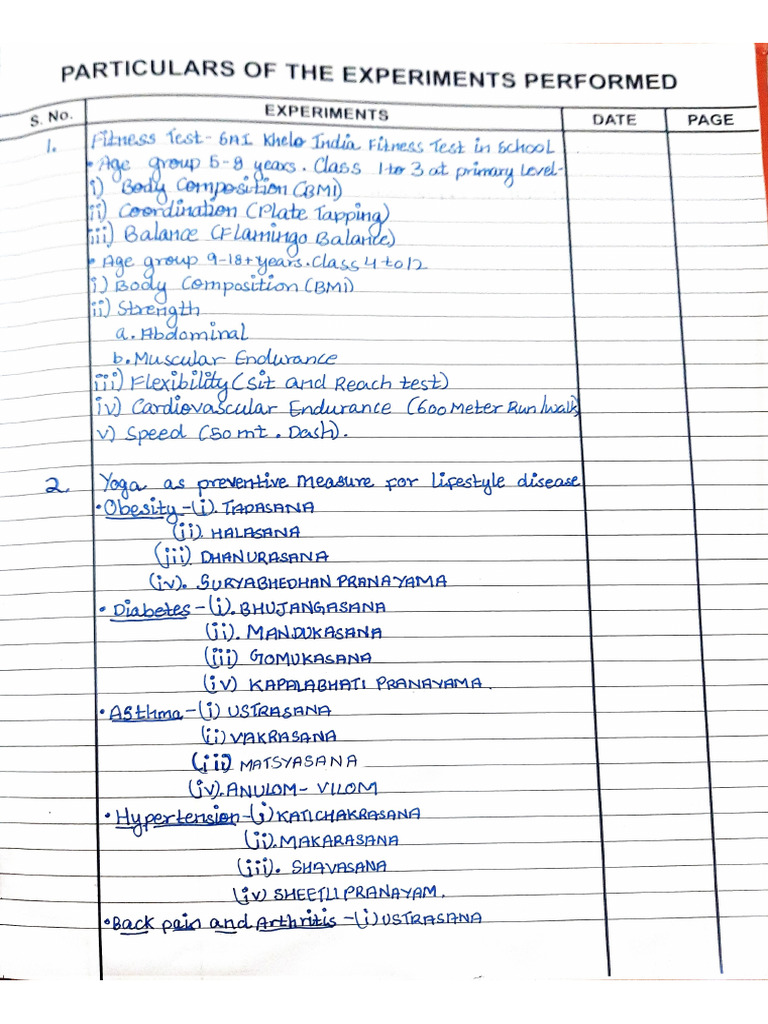 PARTICULARS OF THE EXPERIMENTS PERFORMED
S. No. EXPERIMENTS DATE PAGE
1. Fitness Test - SAI Khelo India Fitness Test in School
• Age group 5-8 years. Class 1 to 3 at primary Level-
i) Body Composition (BMI)
ii) Coordination (Plate Tapping)
iii) Balance (Flamingo Balance)
• Age group 9-18+years. Class 4 to 12
i) Body Composition (BMI)
ii) Strength
a. Abdominal
b. Muscular Endurance
iii) Flexibility (Sit and Reach test)
iv) Cardiovascular Endurance (600 Meter Run/walk)
v) Speed (50 mt. Dash).
2. Yoga as preventive measure for lifestyle disease
• Obesity - (i). TADASANA
(ii). HALASANA
(iii) DHANURASANA
(iv). SURYABHEDHAN PRANAYAMA
• Diabetes - (i). BHUJANGASANA
(ii). MANDUKASANA
(iii) GOMUKASANA
(iv) KAPALABHATI PRANAYAMA.
• Asthma - (i) USTRASANA
(ii) VAKRASANA
(iii) MATSYASANA
(iv). ANULOM - VILOM
• Hypertension - (i) KATICHAKRASANA
(ii). MAKARASANA
(iii). SHAVASANA
(iv) SHEETLI PRANAYAM.
• Back pain and Arthritis - (i) USTRASANA